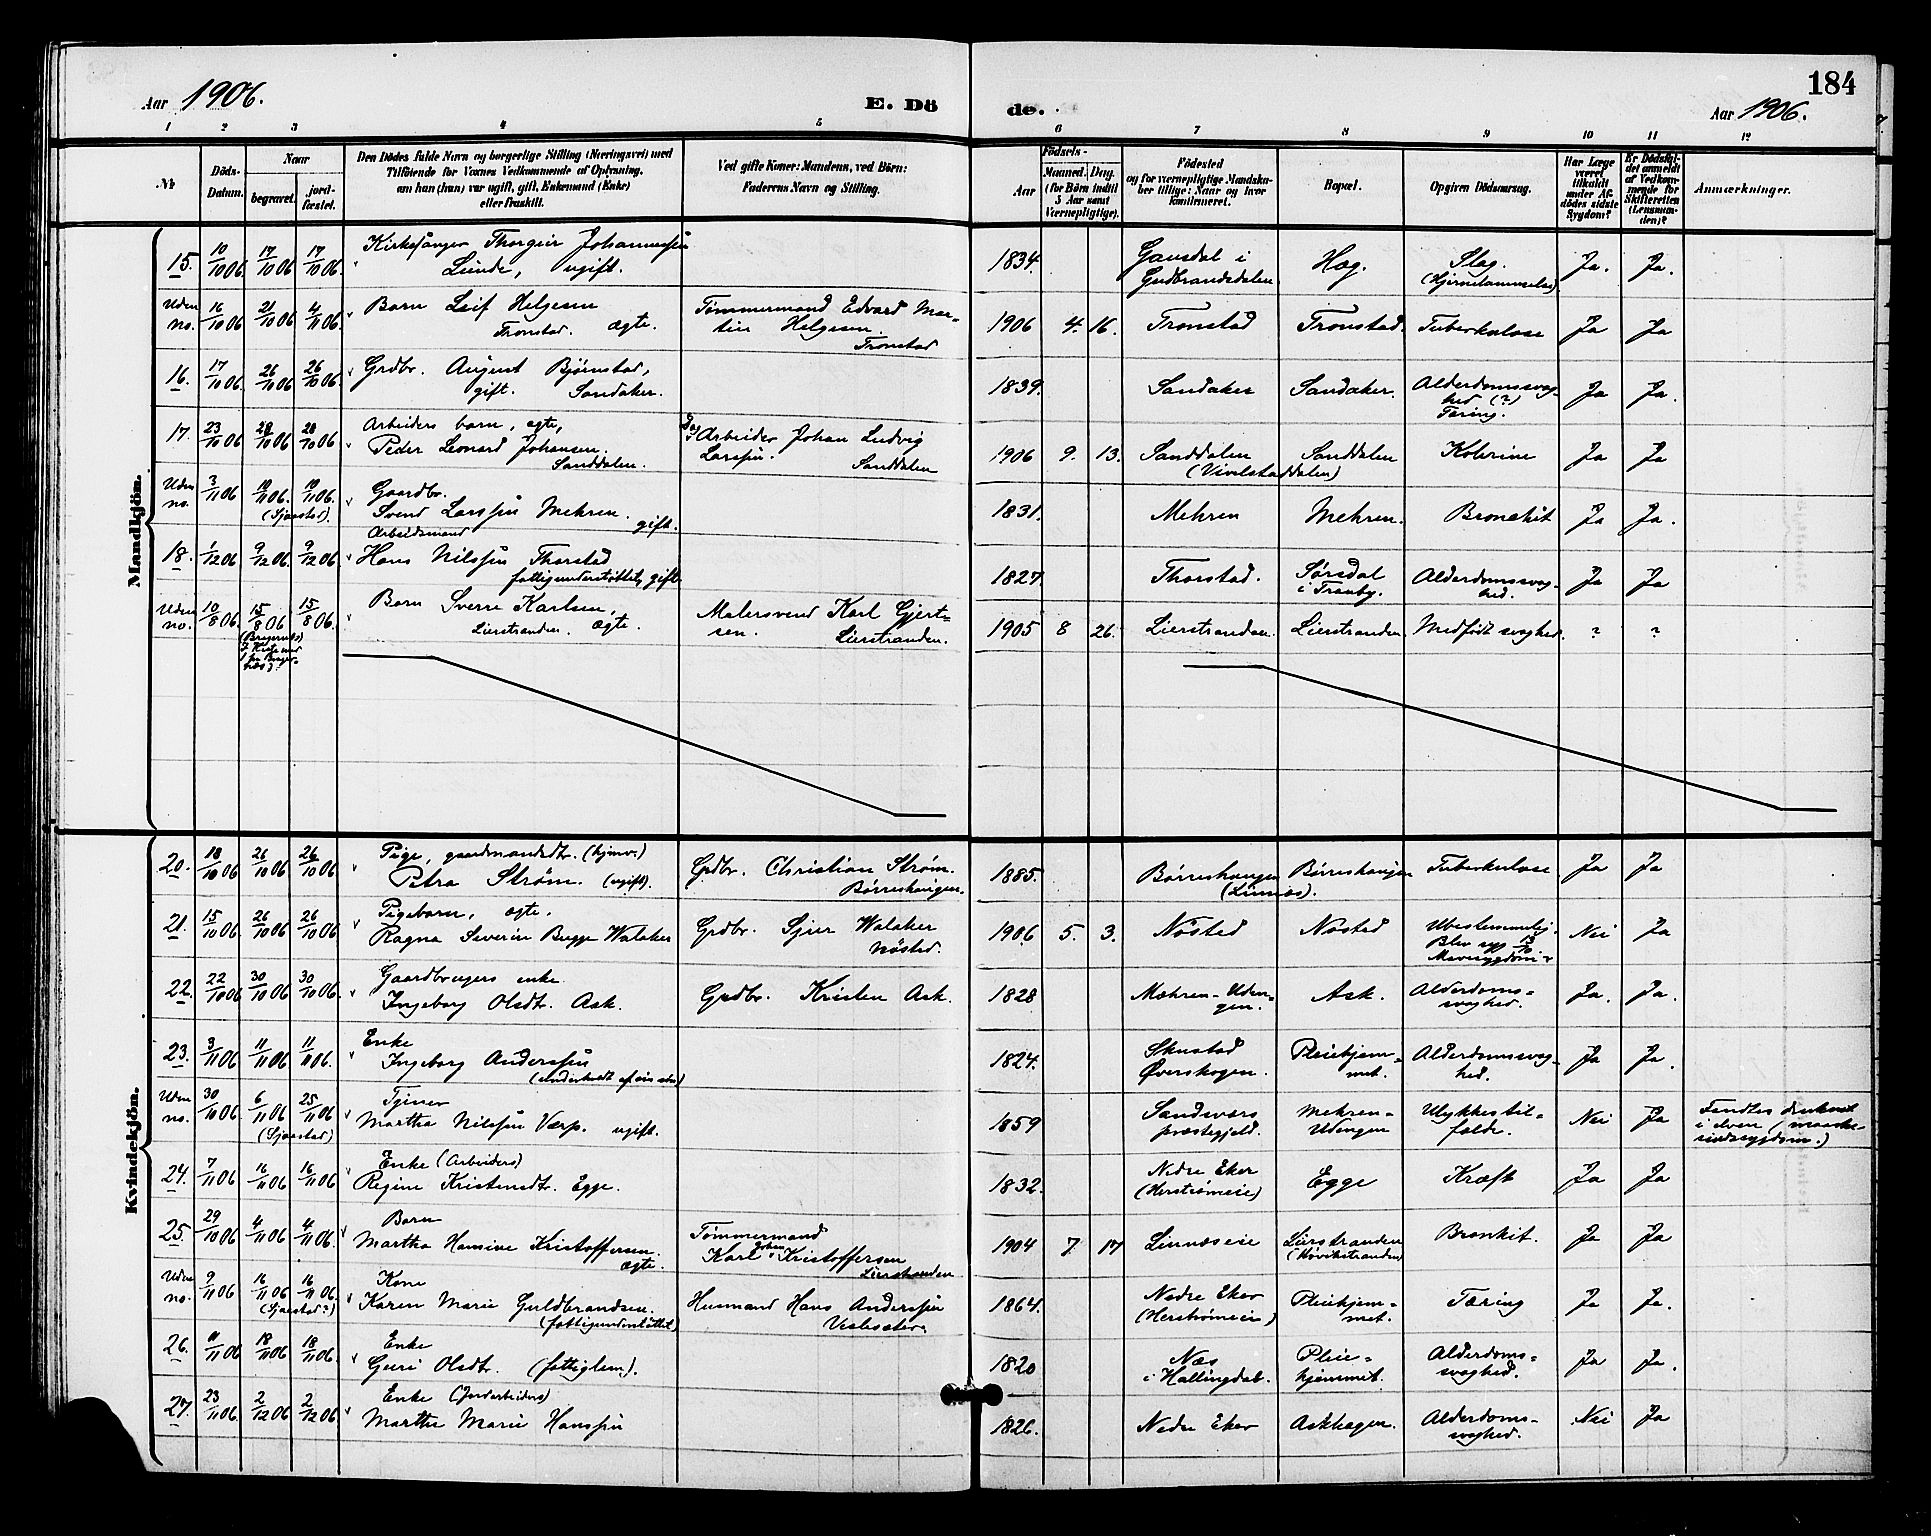 184
Aar 1906.
E. Dö
de.
Aar 1906.
1 2 3 4 5 6 7 8 9 10 11 12
No
Döds-
Datum.
Naar
begravet.
jord-
fæstet.
Den Dödes fulde Navn og borgerlige Stilling (Næringsvei) med
Tilföiende for Voxnes Vedkommende af Oplysning,
om han (hun) var ugift, gift, Enkemand (Enke)
eller fraskilt.
Ved gifte Koner: Mandens, ved Börn:
Faderens Navn og Stilling.
Födsels-
Aar
Maaned. Dag.
(for Börn indtil
5 Aar samt
Værnepligtige).
Födested
og for værnepligtige Mandska-
ber tillige: Naar og hvor
konfirmeret.
Bopæl.
Opgiven Dödsaarsag.
Har Læge
været
tilkaldt
under Af-
dödes sidste
Sygdom?
Er Dödsfal-
det anmeldt
af Vedkom-
mende for
Skifteretten
(Lensman-
den)?
Anmærkninger.
Mandkjön.
15. 10/10 06. 17/10 06 17/10 06. Kirkesanger Thorgeir Johannessen
Lunde, ugift. 1834. Gausdal i
Gudbrandsdalen. Hag. Slag.
(Hjernelammelse) Ja. Ja.
Uden
no. 16/10 06 21/10 06 4/11 06. Barn Leif Helgesen
Tronstad. ægte. Tømmermand Edvard Mar-
tin Helgesen.
Tronstad 1906 4. 16. Tronstad Tronstad. Tuberkulose Ja Ja
16. 17/10 06. 26/10 06 26/10 06. Grdbr. August Bjørnstad,
gift. Sandaker. 1839. Sandaker Sandaker. Alderdomssvag-
hed (?)
Tæring. Ja Ja.
17. 23/10 06 28/10 06 28/10 06 Arbeiders barn, ægte,
Peder Leonard Johansen.
Sanddalen. Arbeider Johan Ludvig
Larssen. Sanddalen 1906 9. 13. Sanddalen
(Vivelstaddalen) Sanddalen Kolerine Ja Ja
Uden
no. 3/11 06 10/11 06. 10/11 06.
(Sjaastad). Gaardbr.
Svend Larssen Mehren. gift. 1831. Mehren Mehren. Bronchit Ja Ja.
18. 1/12 06 9/12 06. 9/12 06 Arbeidsmand
Hans Nilssen Thorstad
fattigunderstøttet, gift. 1827. Thorstad. Sørsdal
i Tranby. Alderdomssvag-
hed. Ja Ja
Uden
no. 10/8 06. 15/8 06 15/8 06. Barn Sverre Karlsen,
Lierstranden. ægte. Malersvend Karl Gjert-
sen. Lierstranden. 1905 8 26. Lierstranden. Lierstranden. Medfødt svaghed. ? ?
(Bragernes)
Kvindekjön.
20. 18/10 06 26/10 06 26/10 06 Pige, gaardmandsdtr. (hjemv.)
Petra Strøm. (ugift). Grdbr. Christian Strøm.
Børreshaugen. 1885. Børreshaugen
(Linnæs). Børreshaugen Tuberkulose. Ja Ja
21. 15/10 06. 26/10 06 26/10 06 Pigebarn, ægte.
Ragna Severin Bugge Walaker Grdbr. Sjur Walaker
Nøsted. 1906 5. 3. Nøsted Nøsted Ubestemmelig.
Blev syg 13/10.
Mavesygdom? Nei Ja
22. 22/10 06 30/10 06 30/10 06. Gaardbrugers enke
Ingeborg Olsdt. Ask. Grdbr. Kristen Ask. 1828 Mehren-Uden-
gen. Ask. Alderdoms-
svaghed. Ja. Ja.
23. 3/11 06 11/11 06 11/11 06. Enke
Ingeborg Anderssen
(underholdt af sin søn) 1824. Skustad
Øverskogen. Pleiehjem-
met. Alderdomssvag-
hed. Ja Ja.
Uden
no. 30/10 06. 6/11 06 25/11 06
(Sjaastad) Tjener
Martha Nilssen Værp. ugift. 1859 Sandsværs
præstegjeld. Mehren-
Udengen Ulykkestil-
fælde. Nei Ja Fandtes druknet
i elven (maaske
sindssygdom.)
24. 7/11 06 16/11 06 16/11 06 Enke (Arbeiders)
Regine Kristensdt. Egge. 1832. Nedre Eker
(Herstrømeie) Egge Kræft Ja Ja
25. 29/10 06 4/11 06 4/11 06. Barn
Martha Hansine Kristoffersen.
ægte. Tømmermand
Karl Johan Kristoffersen
Lierstranden 1904 7 17 Linnæseie Lierstranden
(Høvikstranden) Bronkit. Ja Ja
Uden
no. 9/11 06 16/11 06 16/11 06.
(Sjaastad?) Kone
Karen Marie Guldbrandsen.
(fattigunderstøttet) Husmand Hans Anderssen
1864. Nedre Eker
(Herstrømeie) Pleiehjem-
met. Tæring Ja Ja.
26. 11/11 06 18/11 06 18/11 06. Enke
Guri Olsdt. (fattiglem). 1820 Næs
i Hallingdal. Pleie-
hjemmet. Alderdoms-
svaghed. Ja Ja.
27. 23/11 06. 2/12 06 2/12 06 Enke (Jordarbeiders)
Martha Marie Hanssen 1826. Nedre Eker Askhagen. Alderdoms-
svaghed. Nei Ja